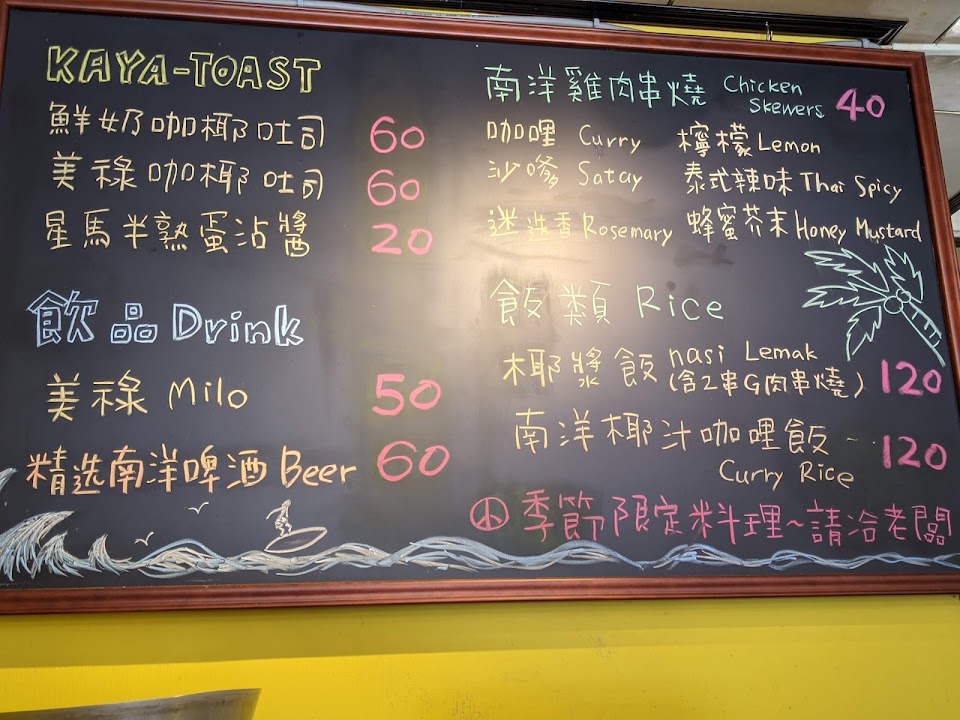 KAYA-TOAST
鮮奶咖椰吐司 60
美祿咖椰吐司 60
星馬半熟蛋沾醬 20
飲品 Drink
美祿 Milo 50
精选南洋啤酒 Beer 60
南洋雞肉串燒 Chicken Skewers 40
咖哩 Curry 檸檬 Lemon
沙嗲 Satay 泰式辣味 Thai Spicy
迷迭香 Rosemary 蜂蜜芥末 Honey Mustard
飯類 Rice
椰漿飯 nasi Lemak 120
(含2串G肉串燒)
南洋椰汁咖哩飯 -- 120
Curry Rice
季節限定料理~請洽老闆